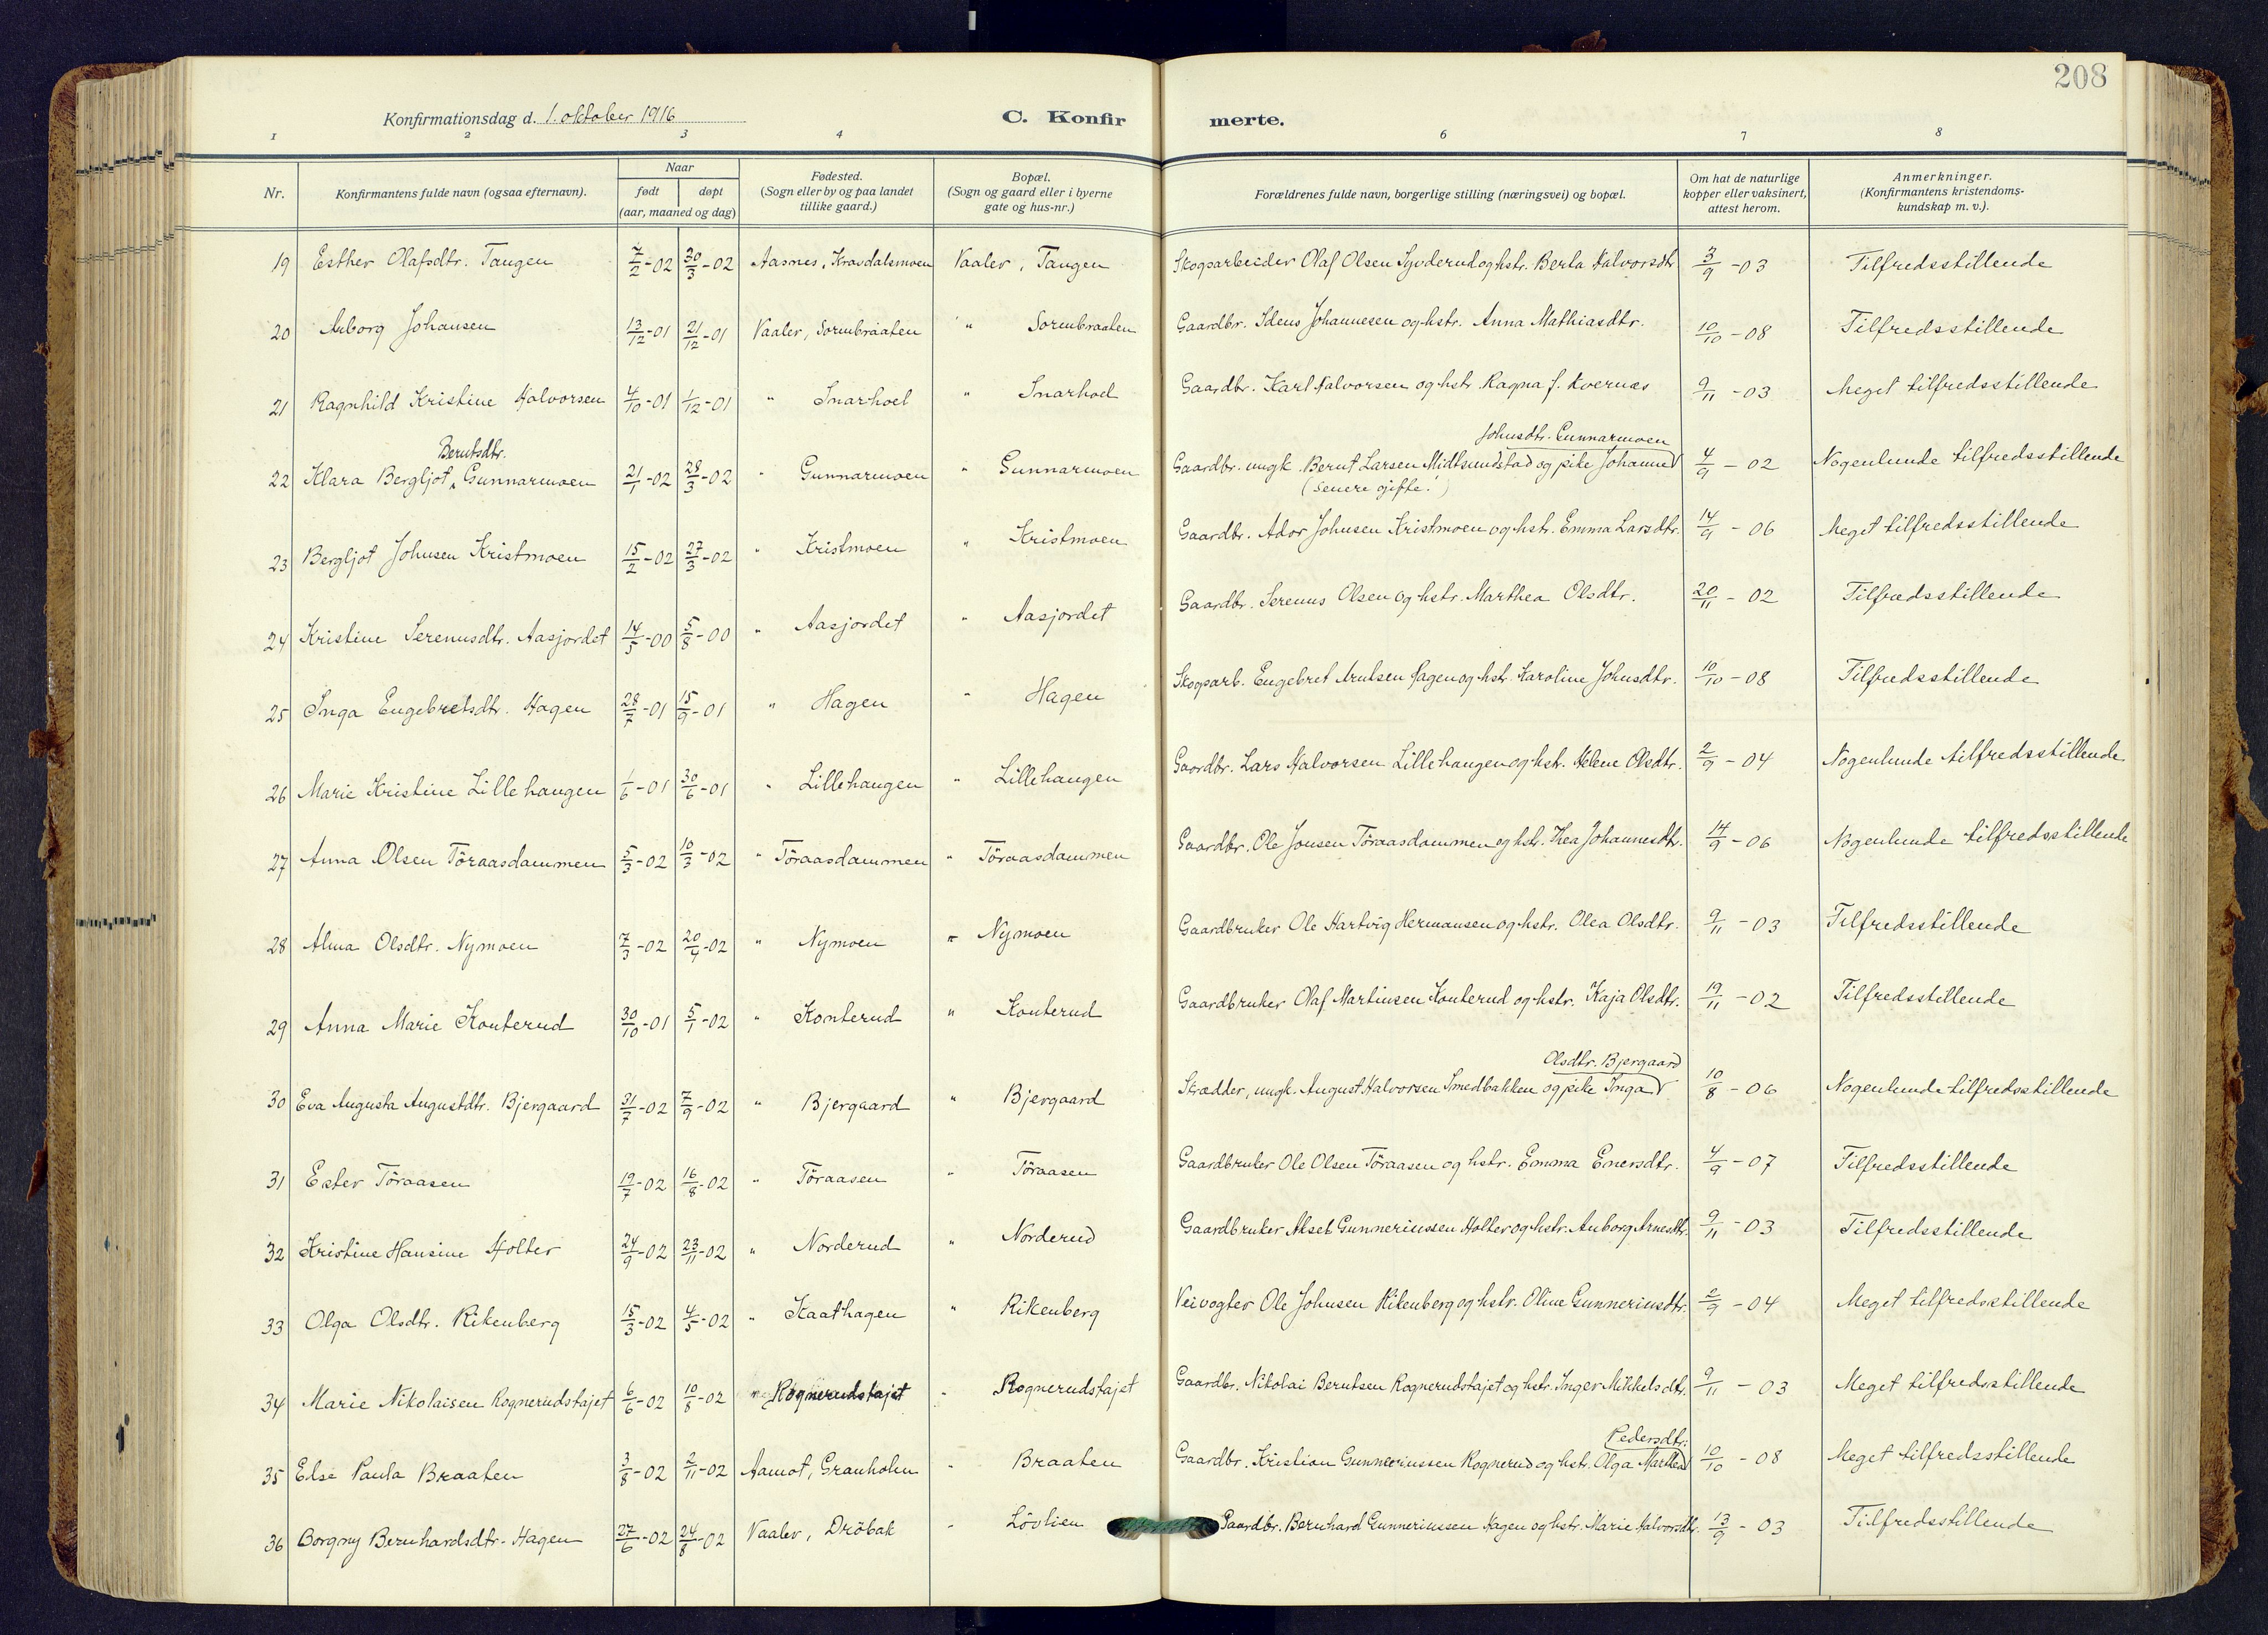 208
Konfirmationsdag d. 1. oktober 1916 C. Konfir merte.
1 2 3 4 6 7 8
Nr. Konfirmantens fulde navn (ogsaa efternavn). Naar født døpt (aar, maaned og dag) Fødested. (Sogn eller by og paa landet tillike gaard.) Bopæl. (Sogn og gaard eller i byerne gate og hus-nr.) Forældrenes fulde navn, borgerlige stilling (næringsvei) og bopæl. Om hat de naturlige kopper eller vaksinert, attest herom. Anmerkninger. (Konfirmantens kristendoms-kundskap m. v.).
19 Esther Olafsdtr. Tangen 7/2-02 30/3-02 Aasnes, Kravdalsmoen Vaaler, Tangen Skogsarbeider Olaf Olsen Syverud og hstr. Berta Halvorsdtr 3/9-03 Tilfredsstillende
20 Aaborg Johansen 13/12-01 21/12-01 Vaaler, Sormbraaten " Sormbraaten Gaardbr. Idens Johannesen og hstr. Anna Mathiasdtr. 10/10-08 Tilfredsstillende
21 Ragnhild Kristine Halvorsen 4/10-01 1/12-01 " Snarhoel " Snarhoel Gaardbr. Karl Halvorsen og hstr. Ragna f. Kvernæs 9/11-03 Meget tilfredsstillende
Berntsdtr. Johnsdtr. Gunnarmoen
22 Klara Bergljot Gunnarmoen 21/1-02 28/3-02 " Gunnarmoen " Gunnarmoen Gaardbr. ungk. Bernt Larsen Midtsundstad og pike Johanne 4/9-02 Nogenlunde tilfredsstillende
(Senere gifte!)
23 Bergljot Johnsen Kristmoen 15/2-02 27/3-02 " Kristmoen " Kristmoen Gaardbr. Ador Johnsen Kristmoen og hstr. Emma Larsdtr. 14/9-06 Meget tilfredsstillende
24 Kristine Serenusdtr. Aasjordet 14/5-00 5/8-00 " Aasjordet " Aasjordet Gaardbr. Serenus Olsen og hstr. Marthea Olsdtr. 20/11-02 Tilfredsstillende
25 Inga Engebretsdtr. Hagen 28/7-01 15/9-01 " Hagen " Hagen Skogsarb. Engebret Arntsen Hagen og hstr. Karoline Johnsdtr. 10/10-08 Tilfredsstillende
26 Marie Kristine Lillehaugen 1/6-01 30/6-01 " Lillehaugen " Lillehaugen Gaardbr. Lars Halvorsen Lillehaugen og hstr. Helene Olsdtr. 2/9-04 Nogenlunde tilfredsstillende
27 Anna Olsen Töraasdammen 5/3-02 10/3-02 " Töraasdammen " Töraasdammen Gaardbr. Ole Jonsen Töraasdammen og hstr. Thea Johannesdtr. 14/9-06 Nogenlunde tilfredsstillende
28 Alma Olsdtr. Nymoen 7/3-02 20/4-02 " Nymoen " Nymoen Gaardbruker Ole Hartvig Hermansen og hstr. Olea Olsdtr. 9/11-03 Tilfredsstillende
29 Anna Marie Konterud 30/10-01 5/1-02 " Konterud " Konterud Gaardbruker Olaf Martinsen Konterud og hstr. Kaja Olsdtr. 19/11-02 Tilfredsstillende
Olsdtr. Bjergaard
30 Eva Augusta Augustdtr. Bjergaard 31/7-02 7/9-02 " Bjergaard " Bjergaard Skrædder, ungk. August Halvorsen Smedbakken og pike Inga 10/8-06 Nogenlunde tilfredsstillende
31 Ester Töraasen 19/7-02 16/8-02 " Töraasen " Töraasen Gaardbruker Ole Olsen Töraasen og hstr. Emma Enersdtr. 4/9-07 Tilfredsstillende
32 Kristine Hansine Holter 24/9-02 23/11-02 " Norderud " Norderud Gaardbruker Aksel Gunneriussen Holter og hstr. Anborg Arnesdtr. 9/11-03 Tilfredsstillende
33 Olga Olsdtr. Rikenberg 15/3-02 4/5-02 " Kaathagen " Rikenberg Veivogter Ole Johnsen Rikenberg og hstr. Oline Gunneriusdtr. 2/9-04 Meget tilfredsstillende
34 Marie Nikolaisen Rognerudstajet 6/6-02 10/8-02 " Rognerudstajet " Rognerudstajet Gaardbr. Nikolai Berntsen Rognerudstajet og hstr. Inger Mikkelsdtr. 9/11-03 Meget tilfredsstillende
Pedersdtr.
35 Else Paula Braaten 3/8-02 2/11-02 Aamot, Granholm " Braaten Gaardbr. Kristian Gunneriussen Rognerud og hstr. Olga Marthea 10/10-08 Meget tilfredsstillende
36 Borgny Bernhardsdtr. Hagen 27/6-02 24/8-02 Vaaler, Dröbak " Lövlien Gaardbr. Bernhard Gunneriussen Hagen og hstr. Marie Halvorsdtr. 13/9-03 Tilfredsstillende